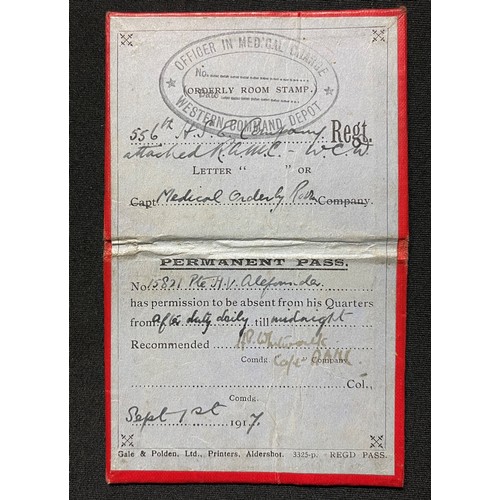 OFFICER IN MEDICAL CHARGE
No.
ORDERLY ROOM STAMP.
Date
WESTERN COMMAND DEPOT
556th H.S. Company Regt.
attached R.A.M.C. - W.C.W
LETTER " " OR
Capt Medical Orderly Room Company.
PERMANENT PASS.
No 15821 Pte H.V. Alefounder
has permission to be absent from his Quarters
from after duty daily till midnight
Recommended Whitworth
Comdg. Company
Capt RAMC
Col.,
Comdg.
Sept 1st 1917.
Gale & Polden, Ltd., Printers, Aldershot. 3325-p. REGD PASS.